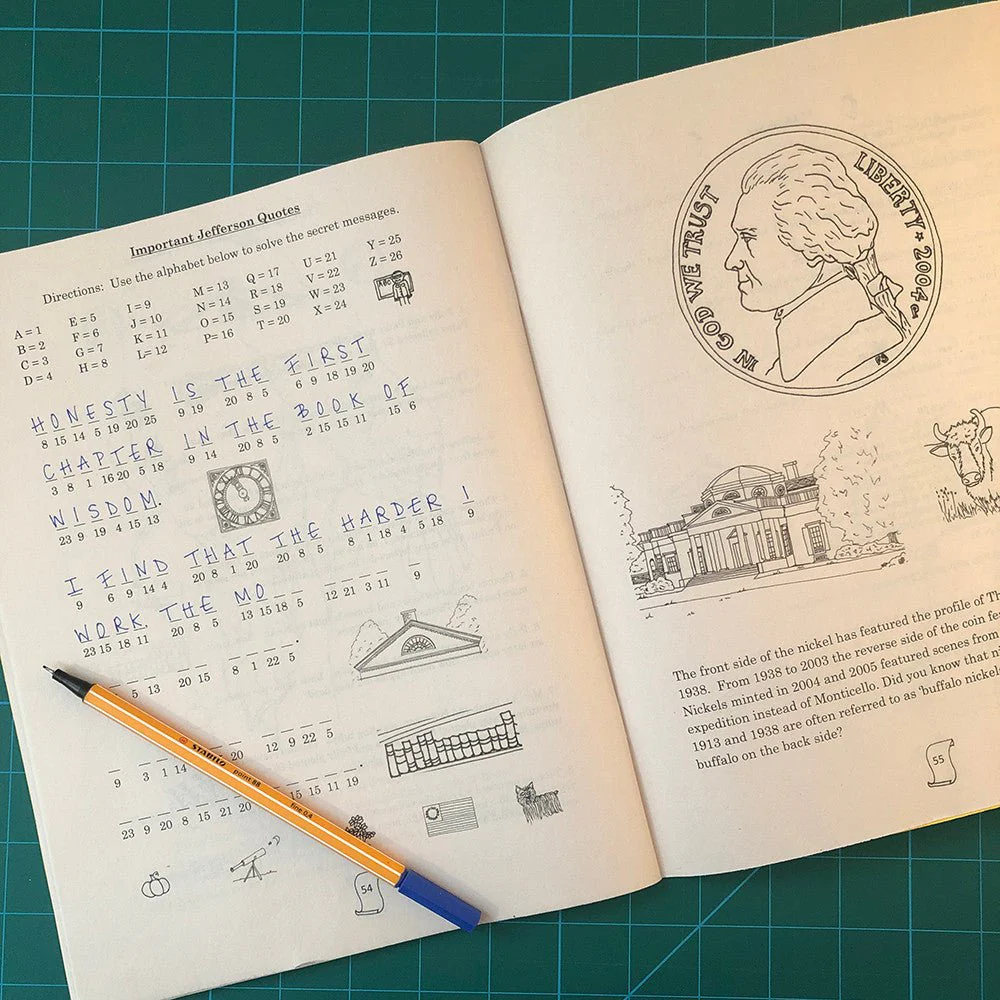 Important Jefferson Quotes
Directions: Use the alphabet below to solve the secret messages.
A = 1 E = 5 I = 9 M = 13 Q = 17 U = 21 Y = 25
B = 2 F = 6 J = 10 N = 14 R = 18 V = 22 Z = 26
C = 3 G = 7 K = 11 O = 15 S = 19 W = 23
D = 4 H = 8 L = 12 P = 16 T = 20 X = 24
ABC
HONESTY IS THE FIRST
8 15 14 5 19 20 25 9 19 20 8 5 6 9 18 19 20
CHAPTER IN THE BOOK OF
3 8 1 16 20 5 18 9 14 20 8 5 2 15 15 11 15 6
WISDOM.
23 9 19 4 15 13
I FIND THAT THE HARDER I
9 6 9 14 4 20 8 1 20 20 8 5 8 1 18 4 5 18 9
WORK THE MO
23 15 18 11 20 8 5 13 15 18 5 12 21 3 11 9
5 13 20 15 8 1 22 5 .
9 3 1 14 20 12 9 22 5
23 9 20 8 15 21 20 15 15 11 19 .
54
STABILO point 88 fine 0,4
IN GOD WE TRUST
LIBERTY ★ 2004
The front side of the nickel has featured the profile of
1938. From 1938 to 2003 the reverse side of the coin
Nickels minted in 2004 and 2005 featured scenes from
expedition instead of Monticello. Did you know that
1913 and 1938 are often referred to as 'buffalo nickels
buffalo on the back side?
55